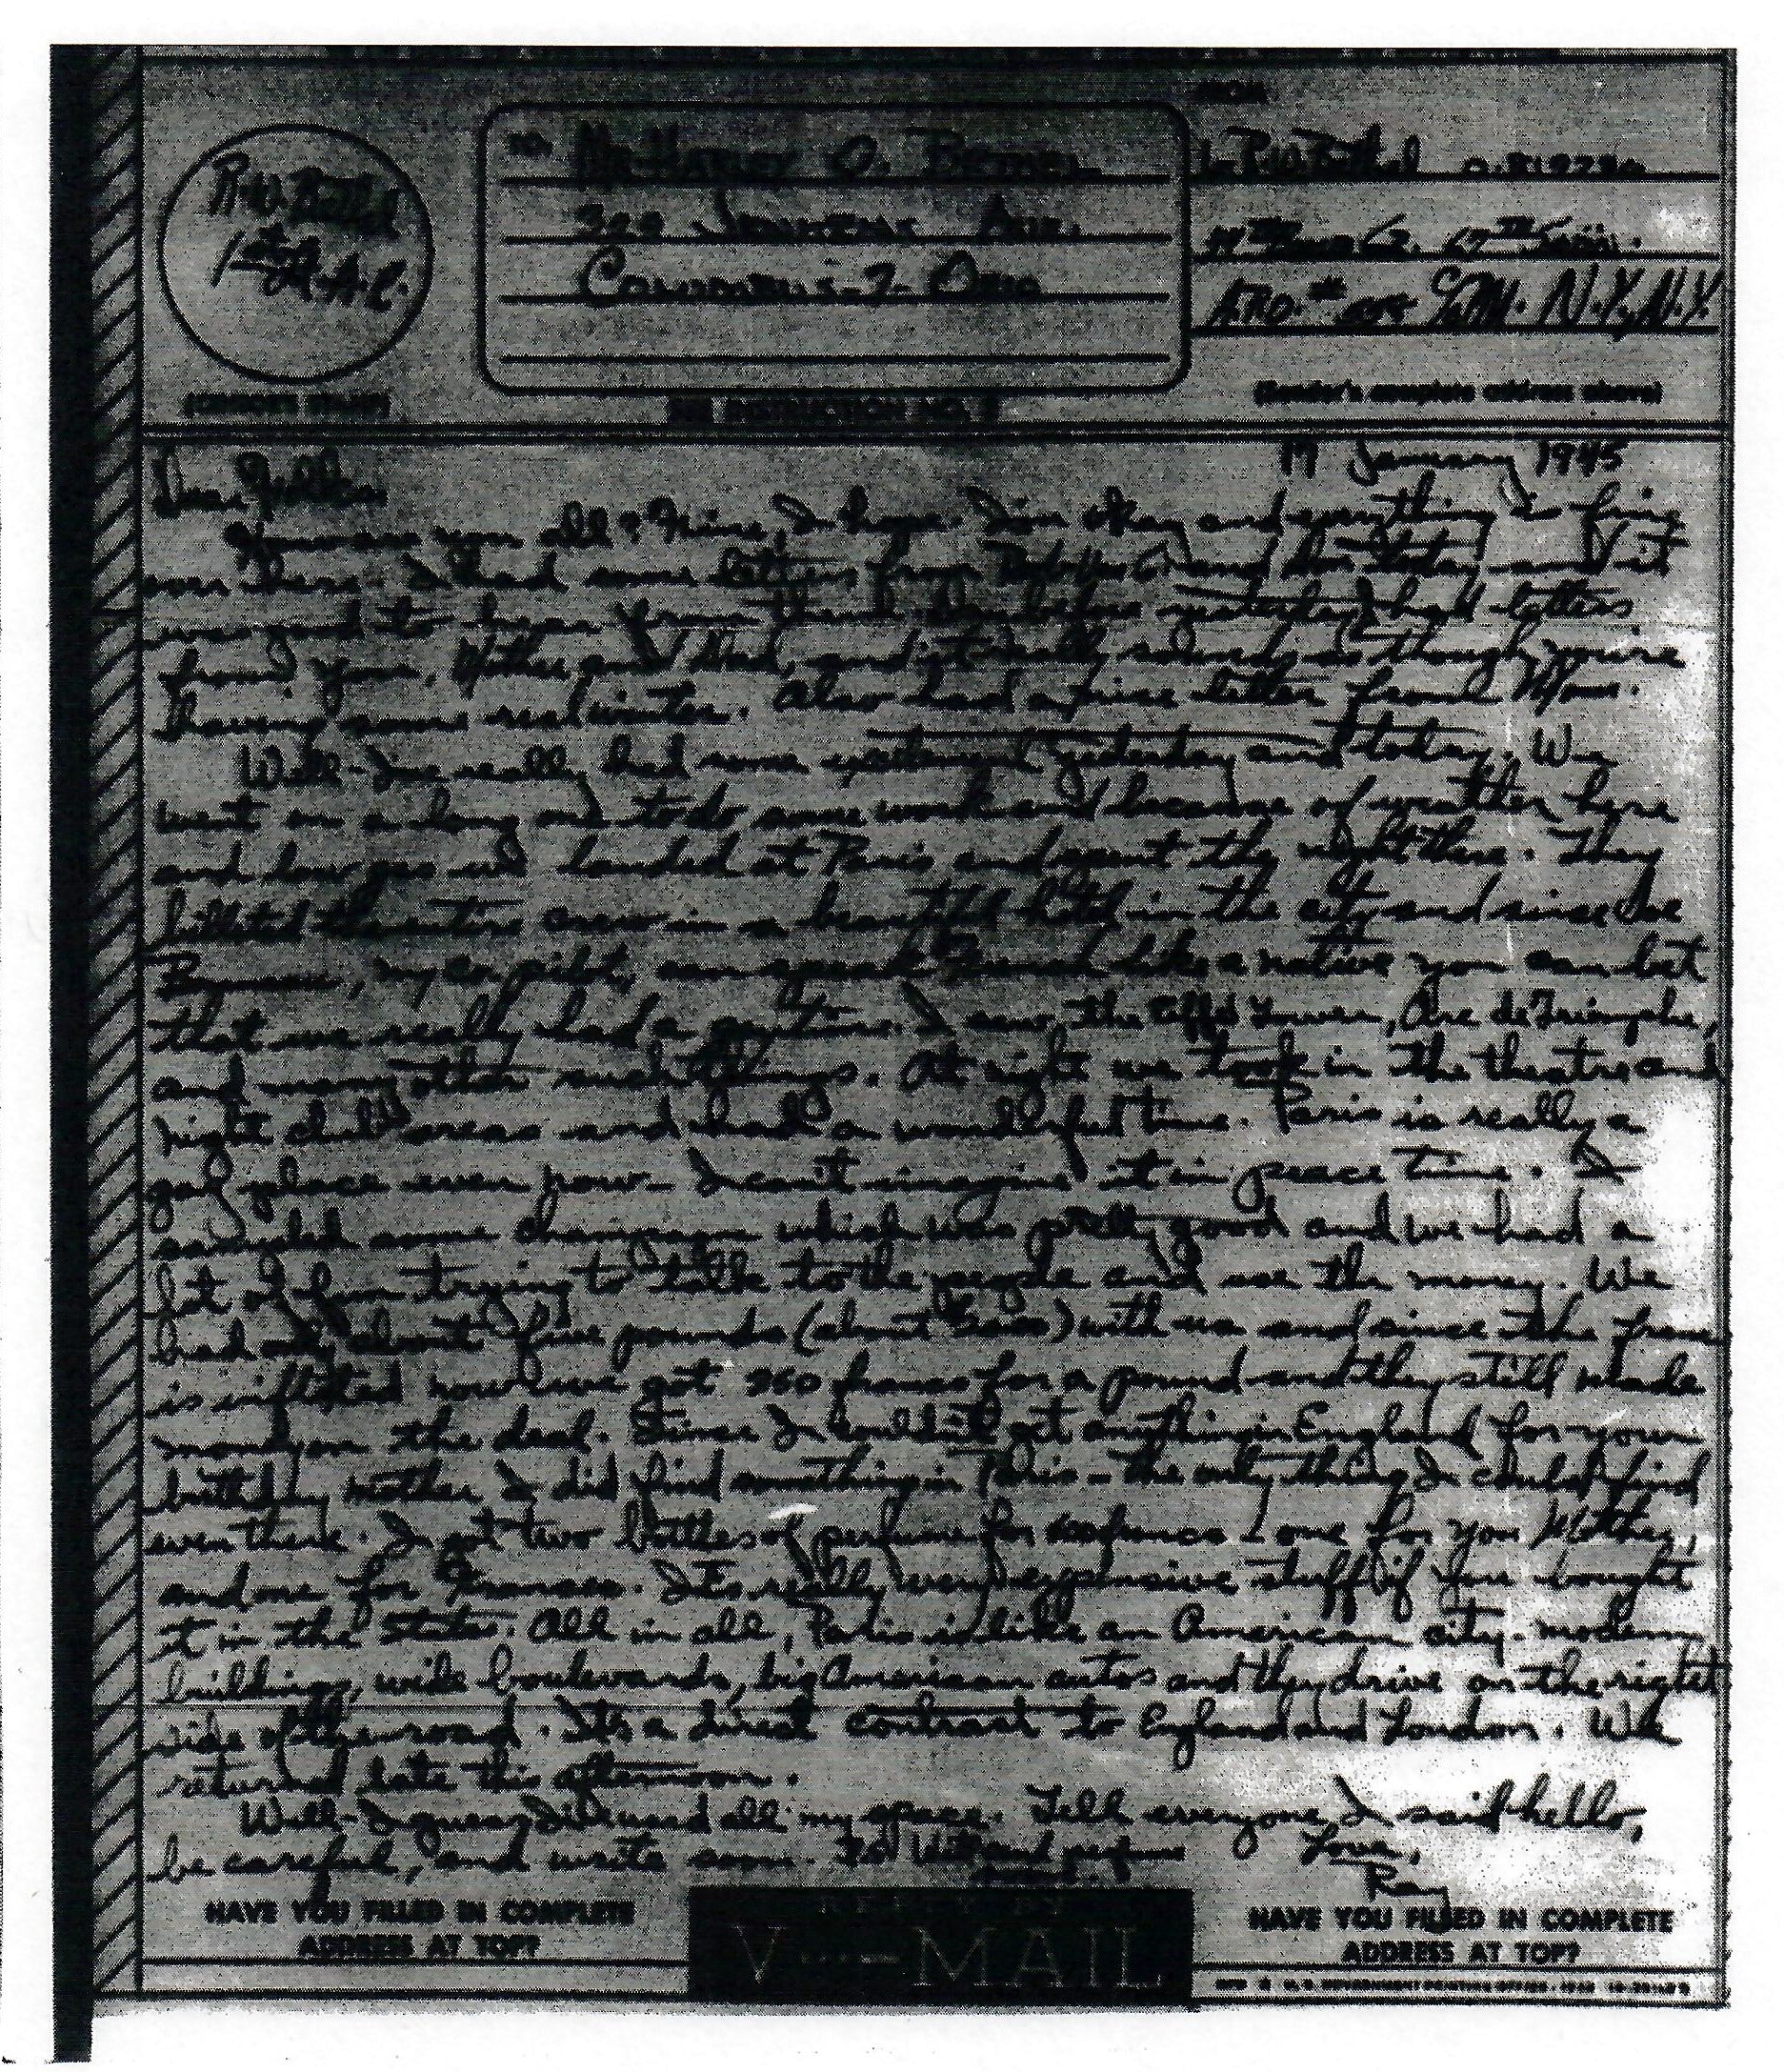 FROM
R.W. Bethel
1st Lt. A.C.
(CENSOR'S STAMP)
TO
Mr. Harley O. Bethel
Ave.
Columbus-7-Ohio
SEE INSTRUCTION NO. 2
Lt. R.W. Bethel
A.P.O. # 558 P.M. N.Y., N.Y.
(Sender's complete address above)
January 1945
Dear Folks,
How are you all? Fine, I hope. I'm okay and everything is fine
over here. I had some letters from and today and it
was good to hear from them. Day before yesterday I had letters
from you, Mother, and Dad, and it really sounds as though you're
having some real winter. Also had a nice letter from
Well - I've really had some excitement yesterday and today. We
went on a long to do some work and because of weather here
and low gas we landed at Paris and spent the night there. They
billeted the entire crew in a beautiful hotel in the city and since
my co-pilot, can speak French like a native you can bet
that we really had a time. I saw the Eiffel Tower, Arc de Triomphe,
and many other such things. At night we took in the theatre and
night club areas and had a wonderful time. Paris is really a
gay place even now - I can't imagine it in peace time. I
sampled some champagne which was pretty good and we had a
lot of fun trying to talk to the people and use the money. We
had only about five pounds (about ) with us and since the franc
is inflated now we got francs for a pound and they still made
money on the deal. Since I couldn't get anything in England for your
birthday mother I did find something in Paris - the only thing I could find
even there. I got two bottles of perfume for francs - one for you Mother,
and one for Frances. It's really very expensive stuff if you bought
it in the states. All in all, Paris is like an American city - modern
buildings, wide boulevards, big American autos and they drive on the right
side of the road. It's a direct contrast to England and London. We
returned late this afternoon.
Well - I guess I've used all my space. Tell everyone I said hello,
be careful, and write soon.
Love,
Ray
HAVE YOU FILLED IN COMPLETE
ADDRESS AT TOP?
V---MAIL
HAVE YOU FILLED IN COMPLETE
ADDRESS AT TOP?